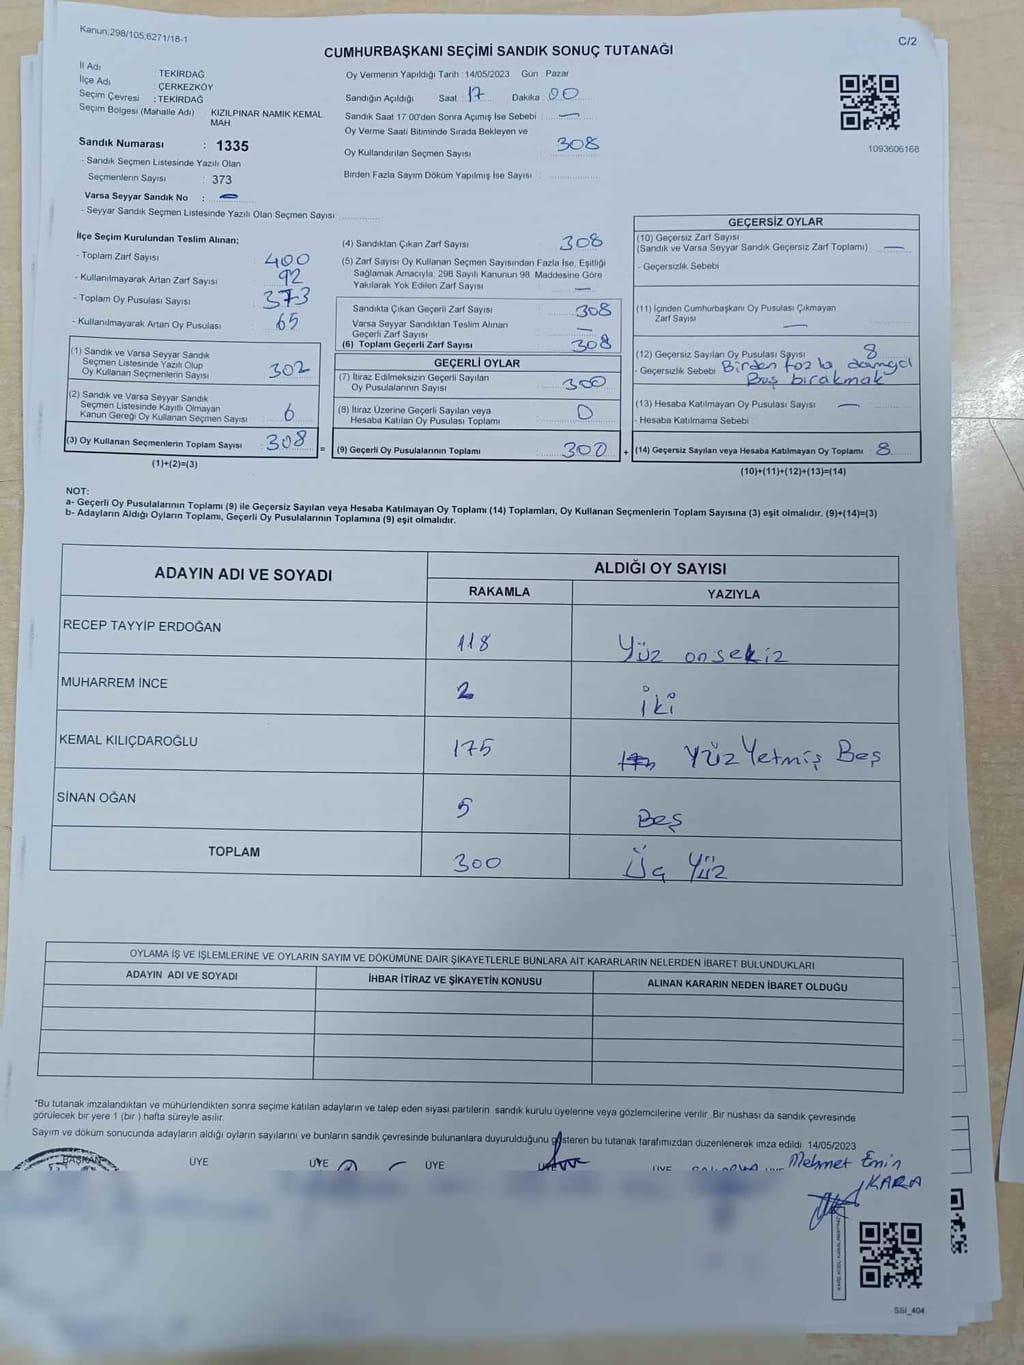 Kanun;298/105;6271/18-1
C/2
CUMHURBAŞKANI SEÇİMİ SANDIK SONUÇ TUTANAĞI
İl Adı TEKİRDAĞ
İlçe Adı ÇERKEZKÖY
Seçim Çevresi : TEKİRDAĞ
Seçim Bölgesi (Mahalle Adı) KIZILPINAR NAMIK KEMAL MAH.
Sandık Numarası : 1335
- Sandık Seçmen Listesinde Yazılı Olan
Seçmenlerin Sayısı : 373
Varsa Seyyar Sandık No : —
- Seyyar Sandık Seçmen Listesinde Yazılı Olan Seçmen Sayısı:
Oy Vermenin Yapıldığı Tarih : 14/05/2023 Gün : Pazar
Sandığın Açıldığı Saat : 17 Dakika : 00
Sandık Saat 17 00'den Sonra Açımış İse Sebebi : —
Oy Verme Saati Bitiminde Sırada Bekleyen ve
Oy Kullandırılan Seçmen Sayısı : 308
Birden Fazla Sayım Döküm Yapılmış İse Sayısı :
1093606168
İlçe Seçim Kurulundan Teslim Alınan;
- Toplam Zarf Sayısı : 400
- Kullanılmayarak Artan Zarf Sayısı : 92
- Toplam Oy Pusulası Sayısı : 373
- Kullanılmayarak Artan Oy Pusulası : 65
(1) Sandık ve Varsa Seyyar Sandık
Seçmen Listesinde Yazılı Olup
Oy Kullanan Seçmenlerin Sayısı : 302
(2) Sandık ve Varsa Seyyar Sandık
Seçmen Listesinde Kayıtlı Olmayan
Kanun Gereği Oy Kullanan Seçmen Sayısı : 6
(3) Oy Kullanan Seçmenlerin Toplam Sayısı : 308
(1)+(2)=(3)
(4) Sandıktan Çıkan Zarf Sayısı : 308
(5) Zarf Sayısı Oy Kullanan Seçmen Sayısından Fazla İse, Eşitliği
Sağlamak Amacıyla, 298 Sayılı Kanunun 98. Maddesine Göre
Yakılarak Yok Edilen Zarf Sayısı : —
Sandıkta Çıkan Geçerli Zarf Sayısı : 308
Varsa Seyyar Sandıktan Teslim Alınan
Geçerli Zarf Sayısı : —
(6) Toplam Geçerli Zarf Sayısı : 308
GEÇERLİ OYLAR
(7) İtiraz Edilmeksizin Geçerli Sayılan
Oy Pusulalarının Sayısı : 300
(8) İtiraz Üzerine Geçerli Sayılan veya
Hesaba Katılan Oy Pusulaları Toplamı : 0
= (9) Geçerli Oy Pusulalarının Toplamı : 300
GEÇERSİZ OYLAR
(10) Geçersiz Zarf Sayısı
(Sandık ve Varsa Seyyar Sandık Geçersiz Zarf Toplamı) : —
- Geçersizlik Sebebi
(11) İçinden Cumhurbaşkanı Oy Pusulası Çıkmayan
Zarf Sayısı : —
(12) Geçersiz Sayılan Oy Pusulası Sayısı : 8
- Geçersizlik Sebebi Birden fazla damga
Boş bırakmak
(13) Hesaba Katılmayan Oy Pusulası Sayısı : —
- Hesaba Katılmama Sebebi :
+ (14) Geçersiz Sayılan veya Hesaba Katılmayan Oy Toplamı : 8
(10)+(11)+(12)+(13)=(14)
NOT:
a- Geçerli Oy Pusulalarının Toplamı (9) ile Geçersiz Sayılan veya Hesaba Katılmayan Oy Toplamı (14) Toplamları, Oy Kullanan Seçmenlerin Toplam Sayısına (3) eşit olmalıdır. (9)+(14)=(3)
b- Adayların Aldığı Oyların Toplamı, Geçerli Oy Pusulalarının Toplamına (9) eşit olmalıdır.
ADAYIN ADI VE SOYADI ALDIĞI OY SAYISI
RAKAMLA YAZIYLA
RECEP TAYYİP ERDOĞAN 118 Yüz onsekiz
MUHARREM İNCE 2 İki
KEMAL KILIÇDAROĞLU 175 Yüz Yetmiş Beş
SİNAN OĞAN 5 Beş
TOPLAM 300 Üç Yüz
OYLAMA İŞ VE İŞLEMLERİNE VE OYLARIN SAYIM VE DÖKÜMÜNE DAİR ŞİKAYETLERLE BUNLARA AİT KARARLARIN NELERDEN İBARET BULUNDUKLARI
ADAYIN ADI VE SOYADI İHBAR İTİRAZ VE ŞİKAYETİN KONUSU ALINAN KARARIN NEDEN İBARET OLDUĞU
*Bu tutanak imzalandıktan ve mühürlendikten sonra seçime katılan adayların ve talep eden siyasi partilerin sandık kurulu üyelerine veya gözlemcilerine verilir. Bir nüshası da sandık çevresinde
görülecek bir yere 1 (bir ) hafta süreyle asılır.
Sayım ve döküm sonucunda adayların aldığı oyların sayılarını ve bunların sandık çevresinde bulunanlara duyurulduğunu gösteren bu tutanak tarafımızdan düzenlenerek imza edildi. 14/05/2023
BAŞKAN ÜYE ÜYE ÜYE ÜYE ÜYE Mehmet Emin
KARA
SSI_404